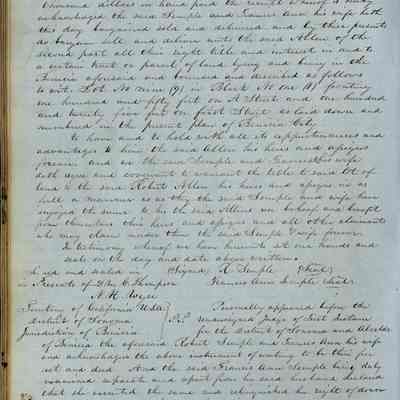 thousand dollars in hand paid the receipt whereof is duly
acknowledged the said Semple and Frances Ann his wife hath
this day bargained sold and delivered and by these presents
do bargain sell and deliver unto the said Allen of the
second part all their right title and interest in and to
a certain tract or parcel of land lying and being in the
Benicia aforesaid and bounded and described as follows
to wit. Lot No nine (9) in Block No one (1) fronting
one hundred and fifty feet on A Street and one hundred
and twenty five feet on first Street as laid down and
numbered in the present plan of Benicia City
To have and to hold with all its appurtenances and
advantages to him the said Allen his heirs and assigns
forever and we the said Semple and Frances his wife
doth agree and covenant to warrant the title to said lot of
land to the said Robert Allen his heirs and assigns in as
full a manner as the said Semple and wife have
enjoyed the same to his the said Allens on behoof and benefit
from themselves their heirs and assigns and all other claimants
who may claim under them the said Semple & wife forever
In testimony whereof we have hereunto set our hands and
seals on the day and date above written.
Signed and sealed in (Signed) R. Semple (Seal)
in Presence of C Thompson Frances Ann Semple (Seal)
A. H.
Territory of California U.S.A. Personally appeared before the
District of Sonoma undersigned Judge of first Instance
Jurisdiction of Benicia for the District of Sonoma and Alcalde
of Benicia the aforesaid Robert Semple and Frances Ann his wife
and acknowledges the above instrument of writing to be their free
act and deed And the said Frances Ann Semple being duly
examined separate and apart from his said husband declared
that she executed the same and relinquished her right of dower